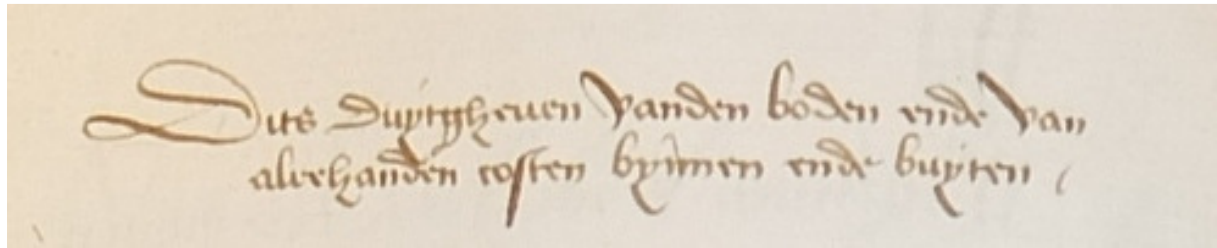 Dits duytgheuen vanden boden ende van
alrehanden costen bynnen ende buyten /